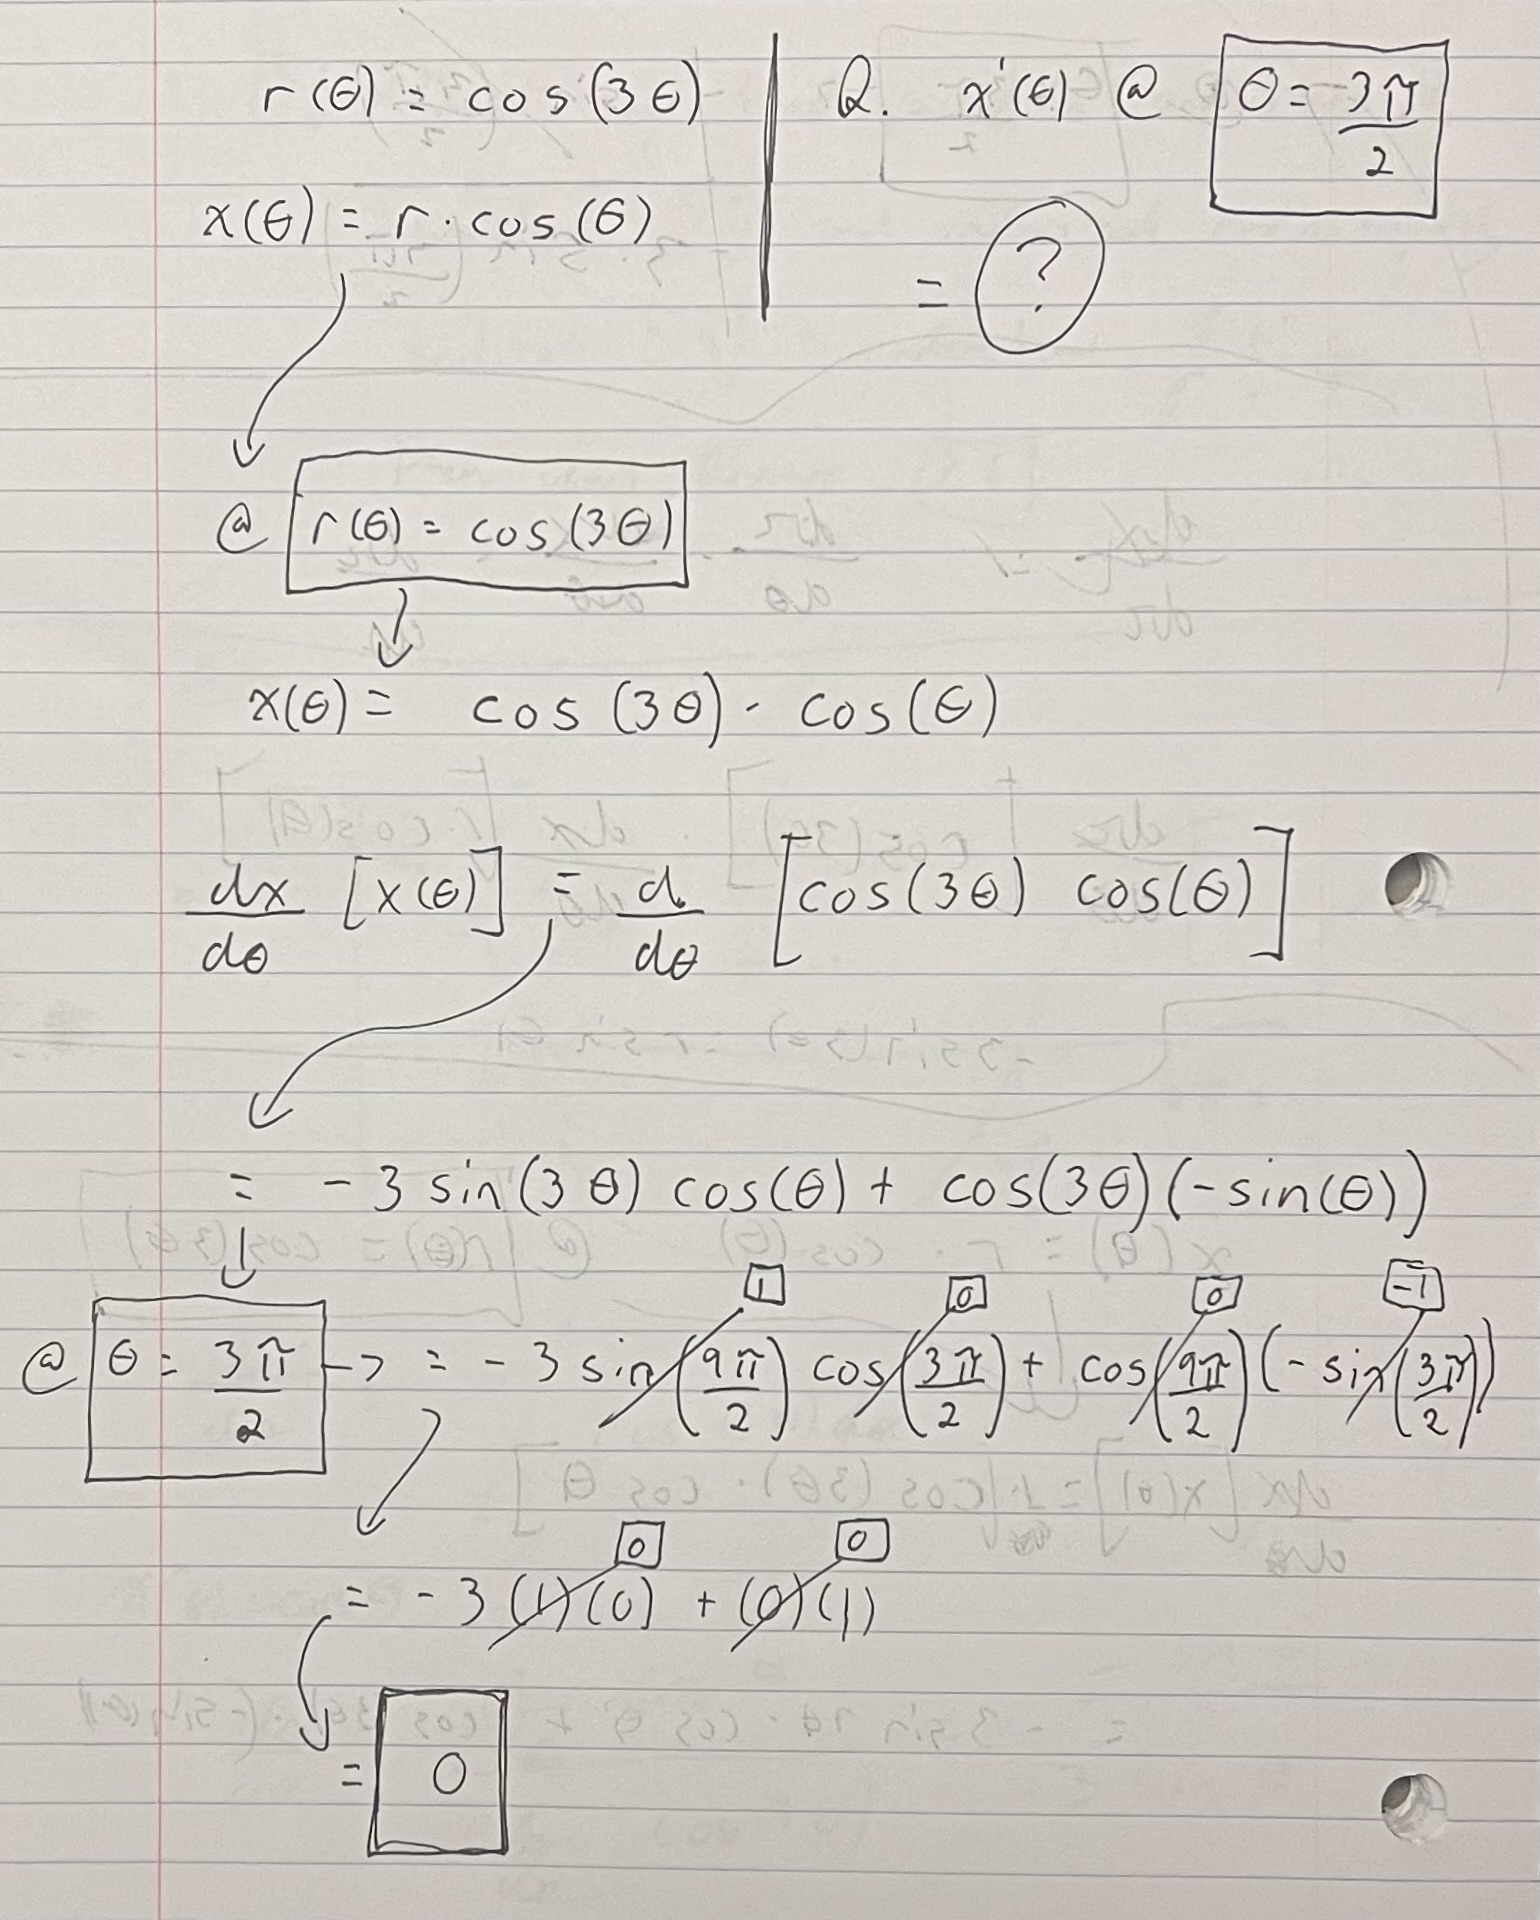 r(θ) = cos(3θ)
x(θ) = r · cos(θ)
Q. x'(θ) @ θ = 3π/2
= ?
@ r(θ) = cos(3θ)
x(θ) = cos(3θ) · cos(θ)
dx/dθ [x(θ)] = d/dθ [cos(3θ) cos(θ)]
= -3 sin(3θ) cos(θ) + cos(3θ)(-sin(θ))
1 0 0 -1
@ θ = 3π/2 -> = -3 sin(9π/2) cos(3π/2) + cos(9π/2)(-sin(3π/2))
0 0
= -3(1)(0) + (0)(1)
= 0